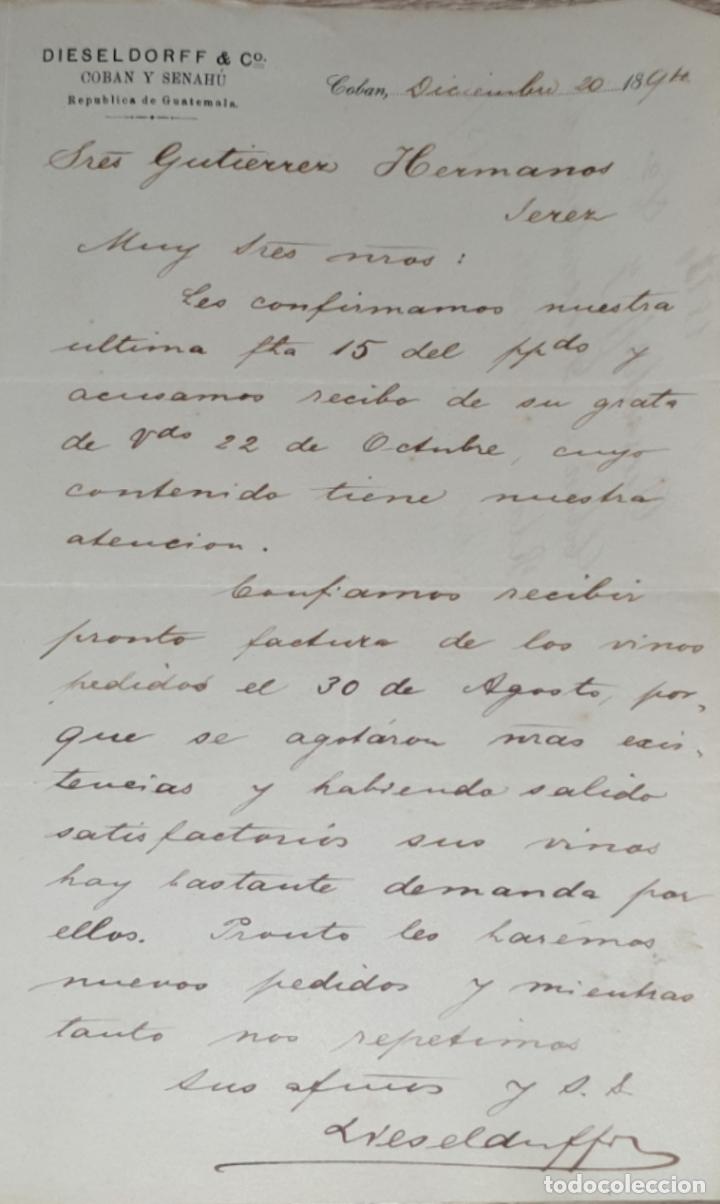 DIESELDORFF & Co.
COBAN Y SENAHÚ
Republica de Guatemala.
Coban, Diciembre 20 1894
Sres Gutierrez Hermanos
Jerez
Muy Sres nros:
Les confirmamos nuestra
ultima fha 15 del ppdo y
acusamos recibo de su grata
de Vds 22 de Octubre, cuyo
contenido tiene nuestra
atencion.
Confiamos recibir
pronto factura de los vinos
pedidos el 30 de Agosto, por-
que se agotáron nras exis-
tencias y habiendo salido
satisfactorios sus vinos
hay bastante demanda por
ellos. Pronto les harémos
nuevos pedidos y mientras
tanto nos repetimos
sus afmos y S. S.
Dieseldorff
todocoleccion